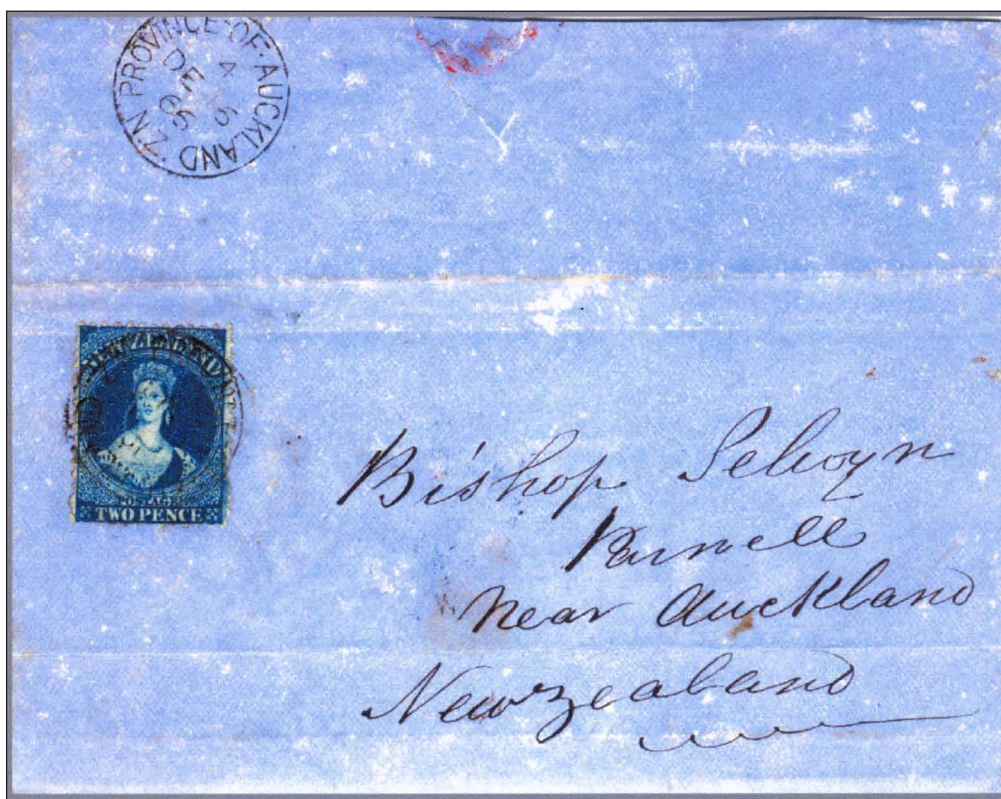 PROVINCE·OF·AUCKLAND N.Z.
4
DE
NEW ZEALAND
POSTAGE
TWO PENCE
Bishop Selwyn
Parnell
Near Auckland
Newzealand